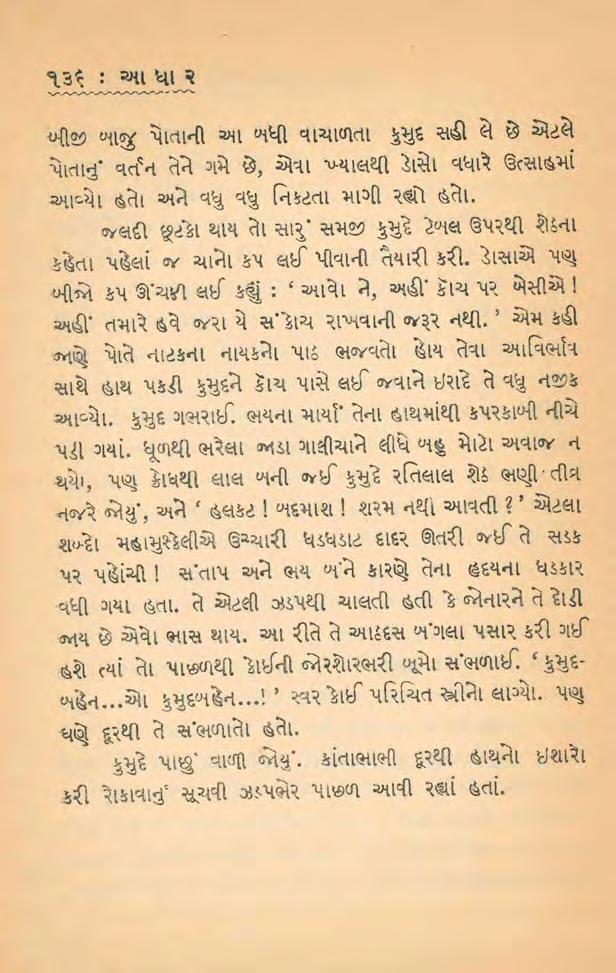 ૧૩૬ : આ ધા ર
બીજી બાજુ પોતાની આ બધી વાચાળતા કુમુદ સહી લે છે એટલે
પોતાનું વર્તન તેને ગમે છે, એવા ખ્યાલથી ડોસો વધારે ઉત્સાહમાં
આવ્યો હતો અને વધુ વધુ નિકટતા માગી રહ્યો હતો.
જલદી છૂટકો થાય તો સારું સમજી કુમુદે ટેબલ ઉપરથી શેઠના
કહેતા પહેલાં જ ચાનો કપ લઈ પીવાની તૈયારી કરી. ડોસાએ પણ
બીજો કપ ઊંચકી લઈ કહ્યું : ‘ આવો ને, અહીં કોચ પર બેસીએ !
અહીં તમારે હવે જરા યે સંકોચ રાખવાની જરૂર નથી. ’ એમ કહી
જાણે પોતે નાટકના નાયકનો પાઠ ભજવતો હોય તેવા આવિર્ભાવ
સાથે હાથ પકડી કુમુદને કોચ પાસે લઈ જવાને ઇરાદે તે વધુ નજીક
આવ્યો. કુમુદ ગભરાઈ. ભયના માર્યાં તેના હાથમાંથી કપરકાબી નીચે
પડી ગયાં. ધૂળથી ભરેલા જાડા ગાલીચાને લીધે બહુ મોટો અવાજ ન
થયો, પણ ક્રોધથી લાલ બની જઈ કુમુદે રતિલાલ શેઠ ભણી તીવ્ર
નજરે જોયું, અને ‘ હલકટ ! બદમાશ ! શરમ નથી આવતી ? ’ એટલા
શબ્દો મહામુશ્કેલીએ ઉચ્ચારી ધડધડાટ દાદર ઊતરી જઈ તે સડક
પર પહોંચી ! સંતાપ અને ભય બંને કારણે તેના હૃદયના ધડકાર
વધી ગયા હતા. તે એટલી ઝડપથી ચાલતી હતી કે જોનારને તે દોડી
જાય છે એવો ભાસ થાય. આ રીતે તે આઠદસ બંગલા પસાર કરી ગઈ
હશે ત્યાં તો પાછળથી કોઈની જોરશોરભરી બૂમો સંભળાઈ. ‘ કુમુદ-
બહેન...ઓ કુમુદબહેન...! ’ સ્વર કોઈ પરિચિત સ્ત્રીનો લાગ્યો. પણ
ઘણે દૂરથી તે સંભળાતો હતો.
કુમુદે પાછું વાળી જોયું. કાંતાભાભી દૂરથી હાથનો ઇશારો
કરી રોકાવાનું સૂચવી ઝડપભેર પાછળ આવી રહ્યાં હતાં.